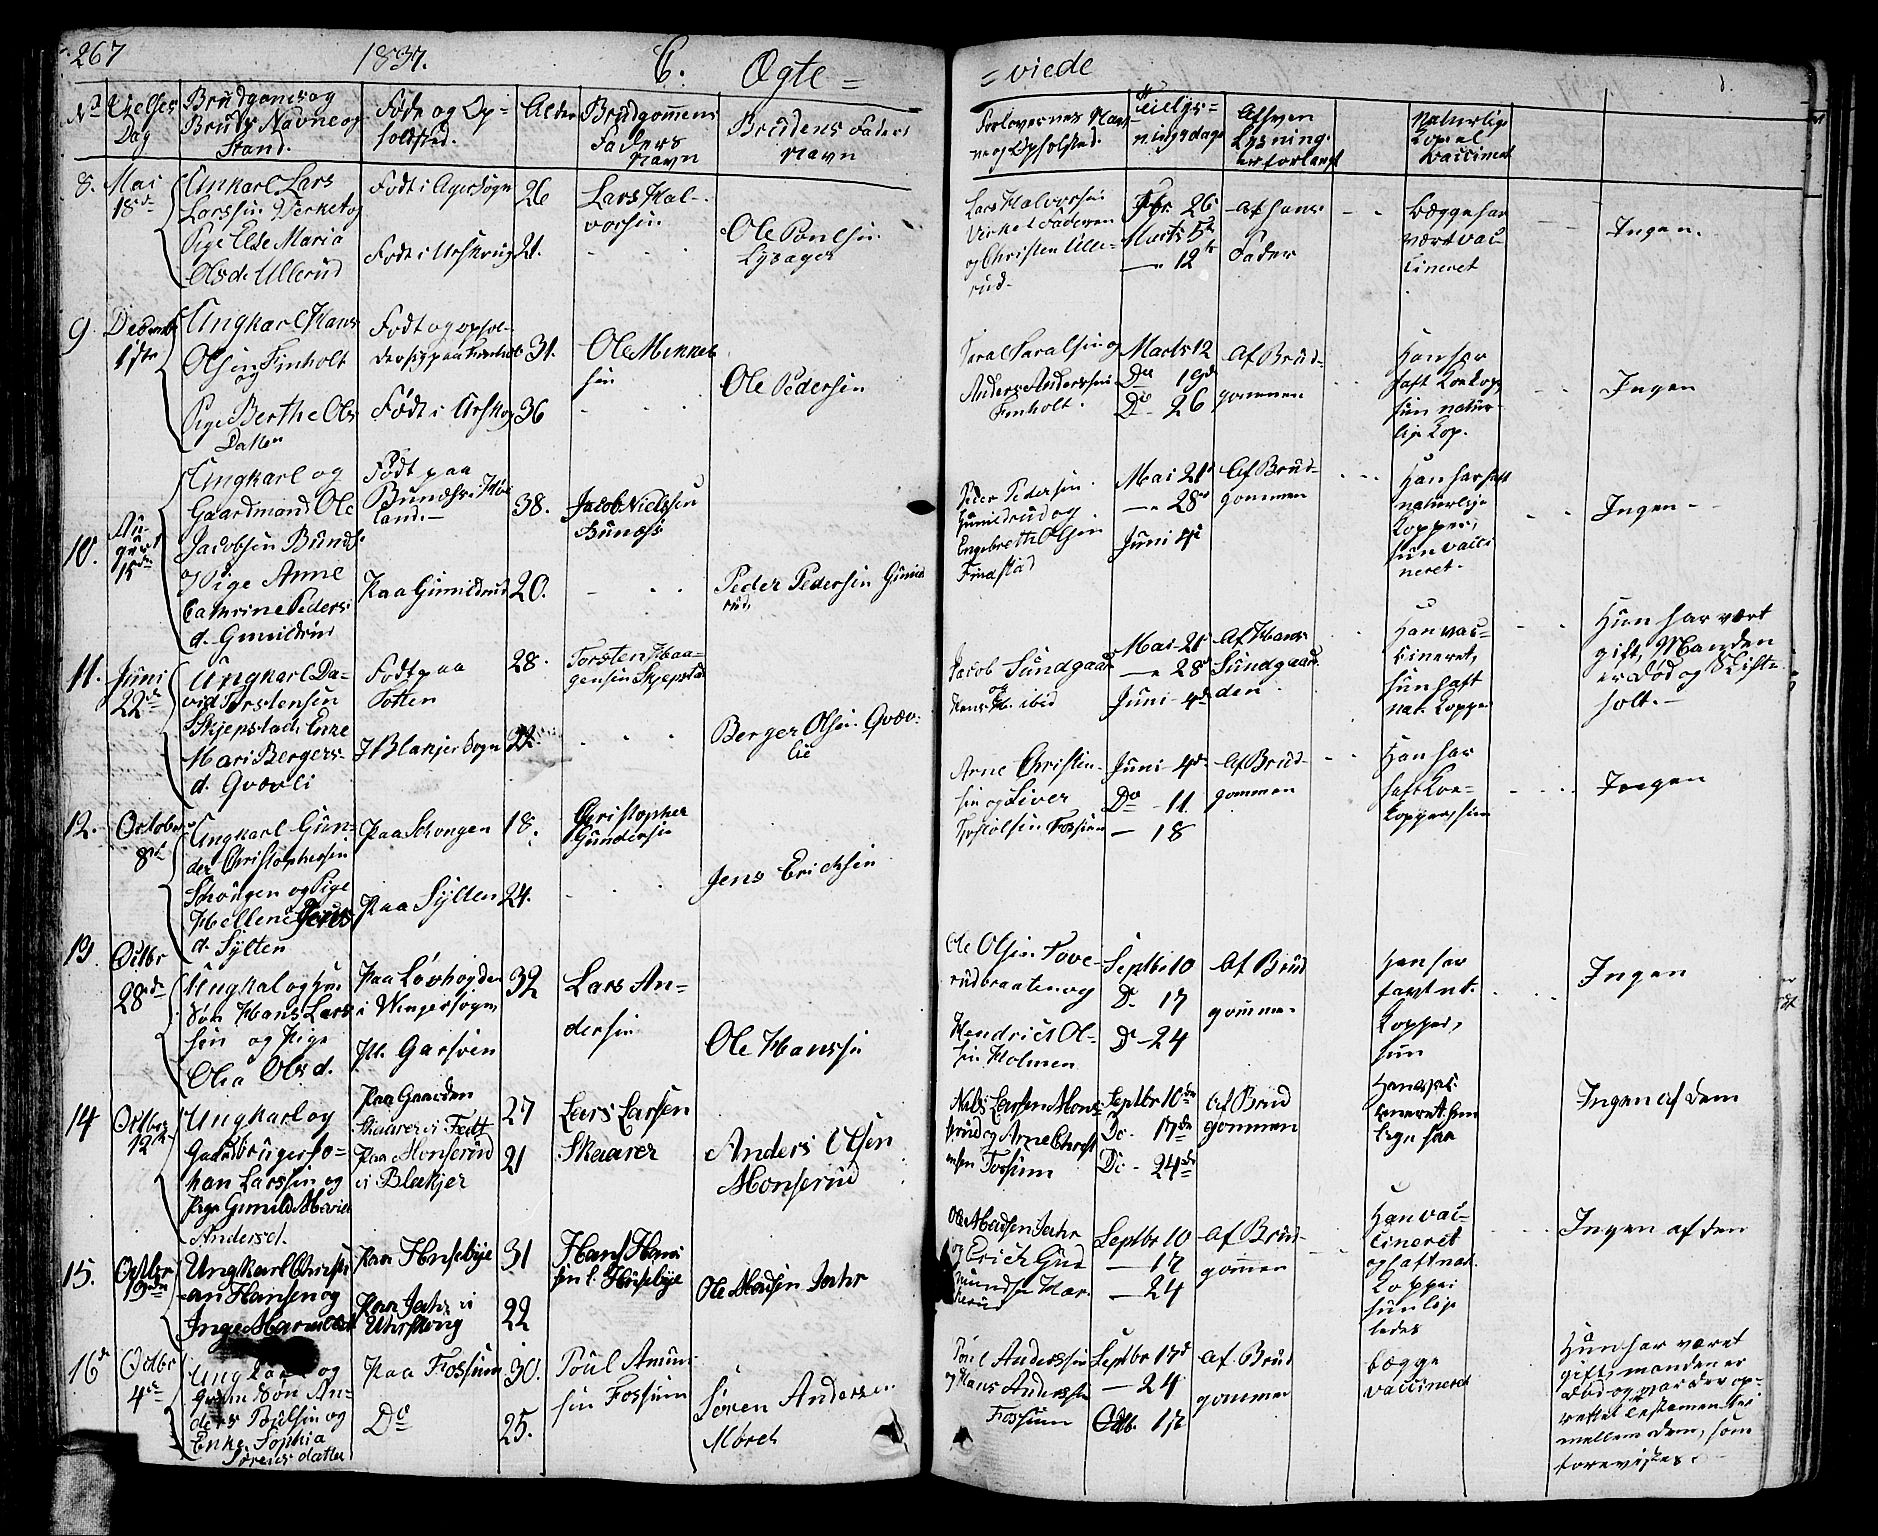 267 1837. C. Ægte =
= viede
No Vielses Dag
Brudgoms og Bruds Navne og Stand.
Føde og Opholdsted.
Alder
Brudgommens Faders Navn
Brudens Faders Navn
Forlovernes Navne og Opholdsted.
Tillysningsdage
Af hvem Lysning er forlangt
Naturlige Kop. el. Vaccineret
8. Mai 18de
Ungkarl Lars
Larssen Verket og
Pige Else Maria
Olsd. Ullerud
Født i Ager Sogn
Født i Urskoug
26
21.
Lars Hal-
vorsen
Ole Poulsen
Lysager
Lars Halvorsen
Verket Faderen
og Christen Ulle-
rud.
Fbr. 26
Marts 5te
— 12te
Af hans
Fader
Begge har
vært vac-
cineret
Ingen.
9. Decembr 1ste
Ungkarl Hans
Olsen Finholt
og
Pige Berthe Ols
Datter
Født og ophol-
der sig paa Finholt
Født i Urskog
31.
36
Ole Mikkel
sen
Ole Pedersen
Anders Andersen
Finholt.
Marts 12
Do 19de
Do 26
Af Brud-
gommen
Han har
haft Koekop.
hun natur-
lige Kop.
Ingen
10. August 15de
Ungkarl og
Gaardmand Ole
Jacobsen Bunæs
og Pige Anne
Cathrine Peders
d. Gunildrud
Født paa
Bunæs i Høe
land.—
Paa Gunildrud
38.
20.
Jacob Nielsen
Bunæs
Peder Pedersen Gunild
rud
Peder Pedersen
Gunildrud og
Engebreth Olsen
Finstad
Mai 21
— 28
Juni 4de
Af Brud-
gommen
Han har haft
naturlige
Kopper,
hun vacci
neret.
Ingen
11. Juni 22de
Ungkarl Da-
vid Torstensen
Skjepstad, Enke
Mari Bergers-
d. Qvævli
Født paa
Totten
I Blakjer Sogn
28.
22.
Torsten Haa-
gensen Skjepstad
Berger Olsen Qvæv-
lie
Jacob Sundgaard
og
Hans H. ibid
Mai 21
— 28
Juni 4de
Af Hans
Sundgaar-
den.
Han vac-
cineret,
hun haft
nat. Kopper
Hun har vært
gift, Manden
er død og Skift-
holt.
12. October 8de
Ungkarl Gun-
der Christophersen
Schougen og Pige
Hellene Jens
d. Sylten
Paa Schougen
Paa Sylten
18.
24.
Christopher
Gundersen
Jens Ericksen
Arne Christen-
sen og Siver
Fossum
Juni 4de
Do 11
— 18
Af Brud-
gommen
Han har
haft Koe-
kopper, hun
Ingen
13. Octbr 28de
Ungkal og
Søn Hans Lars
sen og Pige
Olia Olsd.
Paa Løvhogden
i Vinger Sogn
Paa Garsven
32
Lars An-
dersen
Ole Hanssen
Ole Olsen Tove-
rudbraaten og
Hendrick Ol-
sen Holmen
Septbr 10
D. 17
D. 24
Af Brud
gommen
Han har
havt nt.
Kopper,
hun
Ingen
14 Octbr 12te
Ungkarl og
Gaardbruger Jo-
han Larssen og
Pige Gunild Marie
Andersd.
Paa Gaarden
Skaarer i Fedt
Paa Monserud
i Blakjer
27
21
Lars Larsen
Skaarer
Anders Olsen
Monserud
Nils Larsen Mons
rud og Arne Christ
ensen Fossum
Septbr 10de
Do. 17de
Do. 24de
Af Brud
gommen
Han vac
cineret hun
lige saa
Ingen af dem
15. Octbr 19de
Ungkarl Christi
an Hansen og
Inge
Paa Huseby
Paa Jahr i
Urskoug
31
22
Hans Han
sen Huseby
Ole Madsen Jahr
Ole Madsen Jahr
og Erich Gud
mundsen Har
kerud
Septbr 10
— 17
— 24
Af Brud-
gommen
Han vac-
cineret
og haft nat.
Kopper
hun lige
ledes
Ingen af den
16de Octbr 4de
Ungkarl og
Søn An-
ders Poulsen og
Enke Sophia
Sørens datter
Paa Fossum
Do
30.
25.
Poul Amun
sen Fossum
Søren Andersen
Mørch
Poul Anderssen
og Hans Andersen
Fossum
Septbr 17de
— 24
Octb. 17
Af Brud
gommen
begge
vaccineret
Hun har været
gift, manden er
død og var der op-
rettet Testamente
mellem dem, som
forevistes.